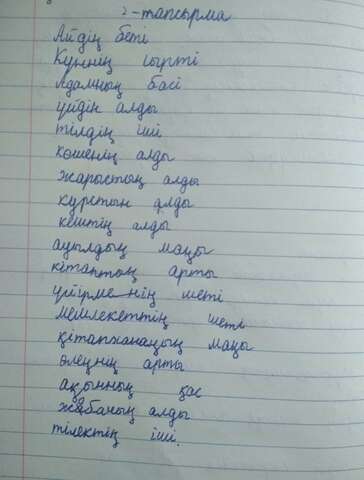 2-тапсырма
Айдың беті
Күннің сырті
Адамның басі
үйдін алды
тілдің іші
көшенің алды
жарыстың алды
курстын алды
кештің алды
ауылдың маңы
кітаптың арты
үйірменің шеті
мемлекеттің шеті
кітапхананың маңы
өлеңнің арты
ақынның қас
жабаның алды
тілектің іші.